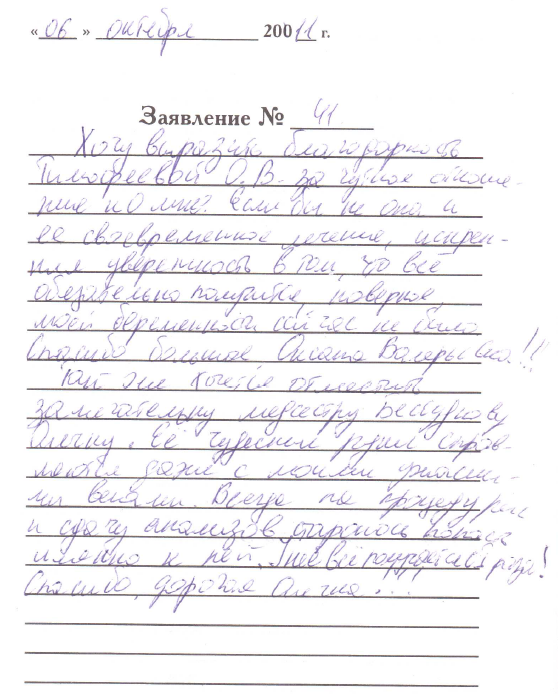 «06» октября 20011 г.
Заявление № 41
Хочу выразить благодарность
Тимофеевой О.В. за чуткое отноше-
ние ко мне! Если бы не она и
её своевременное лечение, искрен-
няя уверенность в том, что всё
обязательно получится, наверное,
моей беременности сейчас не было
Спасибо большое Оксана Валерьевна!!
Так же хочется отметить
замечательну медсестру Бессуднову
Олечку. Её чудесные руки справ-
ляются даже с моими
ми венами. Всегда на процедуры
и сдачу анализов стараюсь попасть
именно к ней. У неё всё получается с раза!
Спасибо, дорогая Олечка...